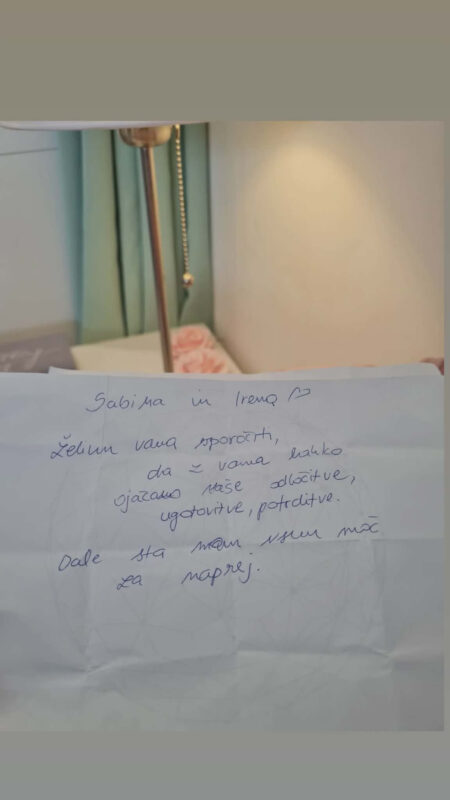 Sabina in Irena
Želim vama sporočiti,
da z vama lahko
ojačamo naše odločitve,
ugotovitve, potrditve.
Dale sta nam vsem moč
za naprej.